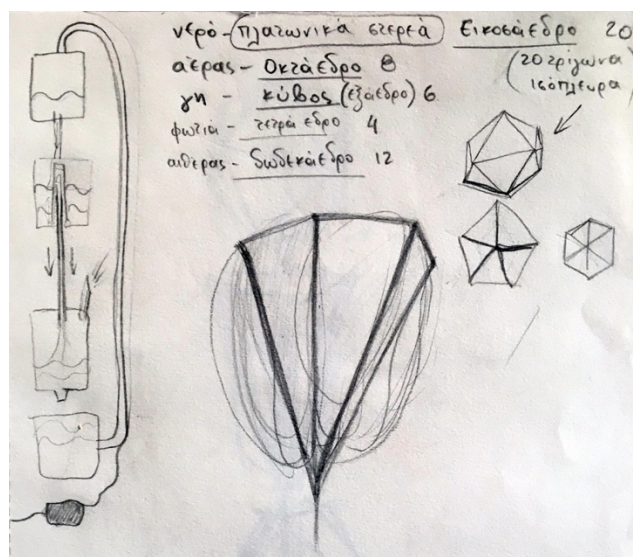 νερό - πλατωνικά στερεά Εικοσάεδρο 20
(20 τρίγωνα
ισόπλευρα)
αέρας - Οκτάεδρο 8
γη - κύβος (εξάεδρο) 6
φωτιά - τετράεδρο 4
αιθέρας - δωδεκάεδρο 12